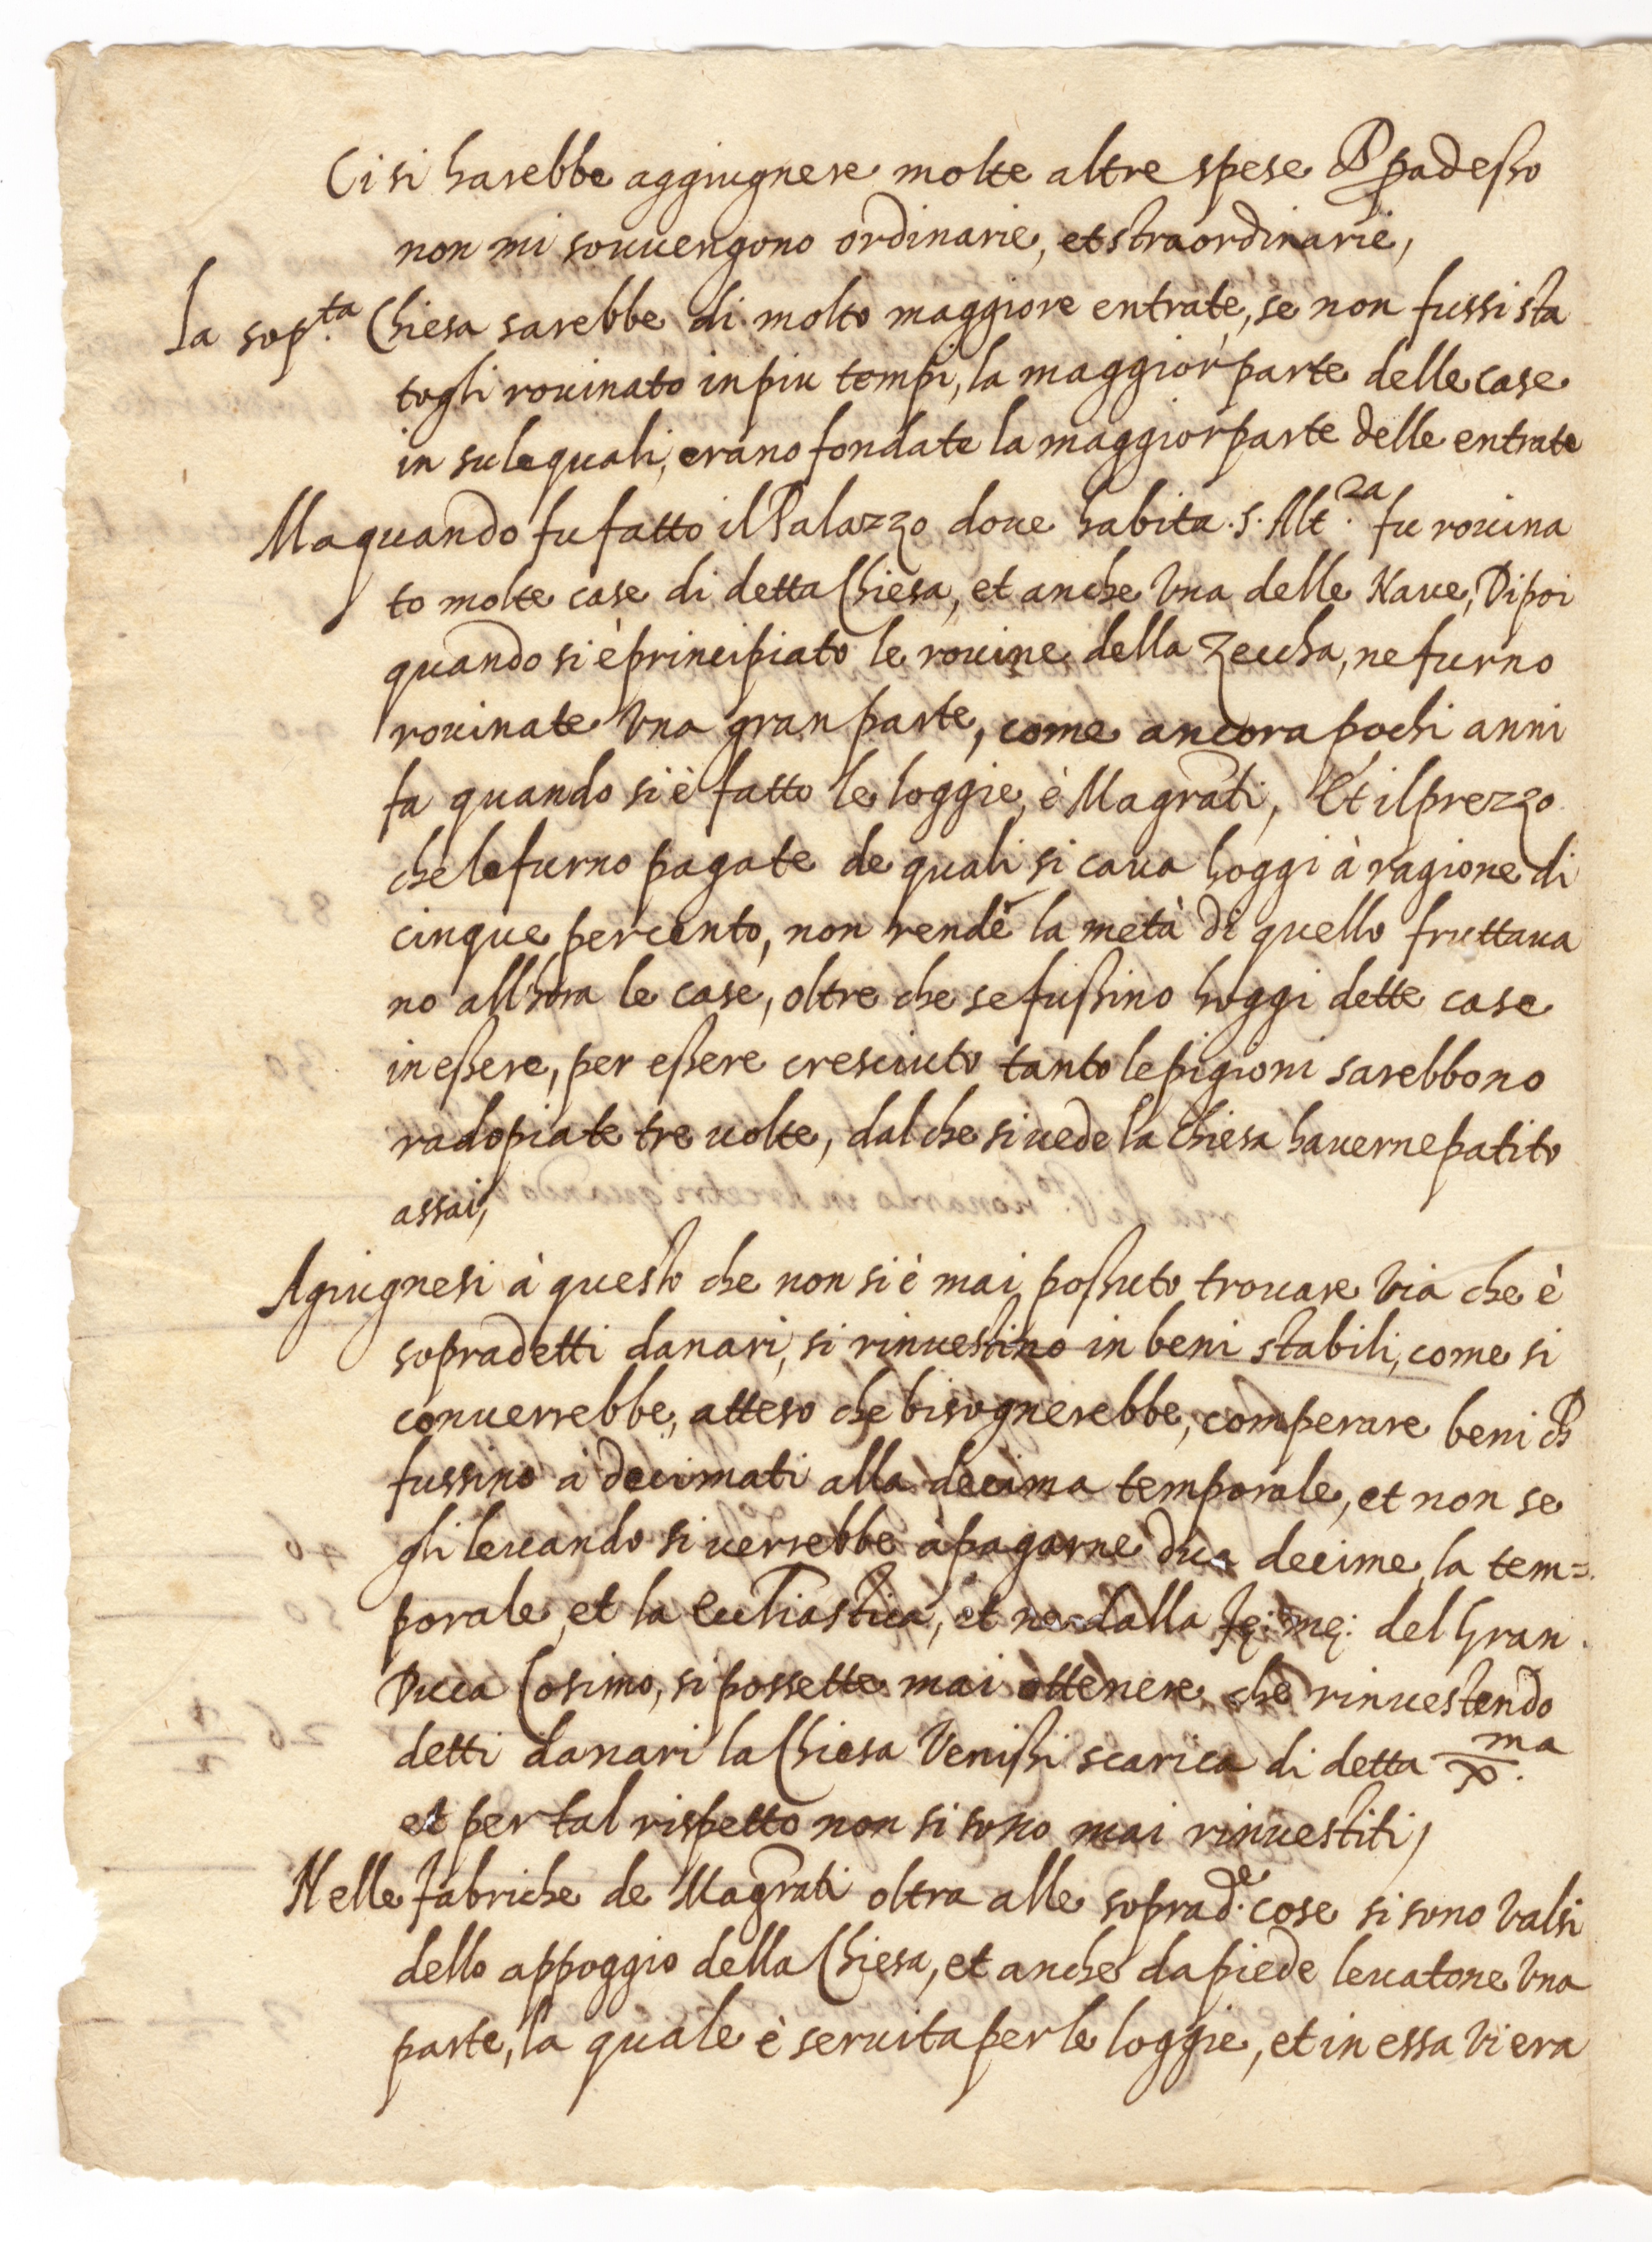 Ci si harebbe aggiugnere molte altre spese ch p adesso
non mi souuengono ordinarie, et straordinarie,
La sop.ta Chiesa sarebbe di molto maggiore entrate, se non fussi sta
togli rouinato in piu tempi, la maggior parte delle case
in sule quali, erano fondate la maggior parte delle entrate
Ma quando fu fatto il Palazzo doue habita .S. Alt.za fu rouina
to molte case di detta Chiesa, et anche Vna delle Naue, Dipoi
quando si è principiato le rouine della Zeccha, ne furno
rouinate Vna gran parte, come ancora pochi anni
fa quando si è fatto le loggie, è Magrati, Et il prezzo
che le furno pagate de quali si caua hoggi à ragione di
cinque per cento, non rende la metà di quello fruttaua
no allhora le case, oltre che se fussino hoggi dette case
in essere, per essere cresciuto tanto le pigioni sarebbono
radopiate tre uolte, dal che si uede la Chiesa hauerne patito
assai,
Agiugnesi à questo che non si è mai possuto trouare Via che è
sopradetti danari, si rinuestino in beni stabili, come si
conuerrebbe, atteso che bisognerebbe, comperare beni ch
fussino a decimati alla decima temporale, et non se
gli leuando si uerrebbe à pagarne dua decime, la tem=
porale, et la Ecclīastica, et ne dalla fe: me: del Gran
Duca Cosimo, si possette mai ottenere che rinuestendo
detti danari la Chiesa Venissi scarica di detta X.ma
et per tal rispetto non si sono mai rinuestiti,
Nelle fabriche de Magrati oltra alle soprad.e cose si sono Valsi
dello appoggio della Chiesa, et anche da piede leuatone Vna
parte, la quale è seruita per le loggie, et in essa Vi era